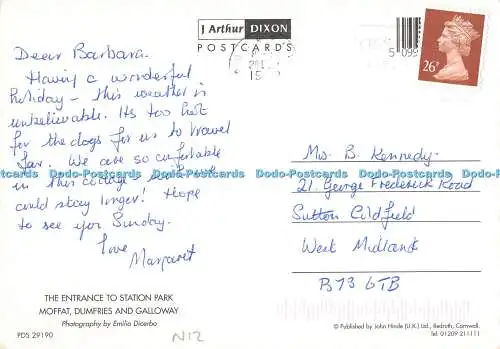 J Arthur DIXON
POSTCARDS
15
5 099
26P
Dear Barbara.
Having a wonderful
holiday - this weather is
unbelievable. Its too hot
for the dogs for us to travel
far. We are so comfortable
in this cottage
could stay longer! Hope
to see you Sunday.
love
Margaret
Mrs B. Kennedy.
21. George Frederick Road
Sutton Coldfield
West Midlands
B73 6TB
Dodo-Postcards Dodo-Postcards Dodo-Postcards Dodo-Postcards Dodo-Postcards
THE ENTRANCE TO STATION PARK
MOFFAT, DUMFRIES AND GALLOWAY
Photography by Emilio Dicerbo
PDS 29190
N12
© Published by John Hinde (U.K.) Ltd., Redruth, Cornwall.
Tel: 01209 211111